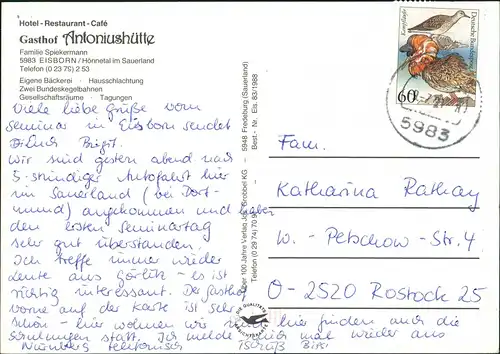 Hotel-Restaurant-Café
Gasthof Antoniushütte
Familie Spiekermann
5983 EISBORN/Hönnetal im Sauerland
Telefon (0 23 79) 2 53
Eigene Bäckerei · Hausschlachtung
Zwei Bundeskegelbahnen
Gesellschaftsräume · Tagungen
Viele liebe Grüße vom
Seminar in Eisborn sendet
Euch Birgit.
Wir sind gestern abend nach
5-stündiger Autofahrt hier
im Sauerland (bei Dort-
mund) angekommen und haben
den ersten Seminartag
sehr gut überstanden.
Ich treffe immer wieder
Leute aus Görlitz - es ist
richtig interessant. Der Gasthof
vorne auf der Karte ist sehr
schön - hier wohnen wir und hier finden auch die
Schulungen statt. Ich melde mich mal wieder aus
Nürnberg telefonisch Tschüß Birgit
Über 100 Jahre Verlag Grobbel KG
5948 Fredeburg (Sauerland)
Telefon (0 29 74) 70
Best.-Nr. Eis. 83/1988
DIE QUALITÄTS
Kampfläufer
Deutsche Bundespost
60
5983
Fam.
Katharina Rathay
W.-Petschow-Str. 4
O-2520 Rostock 25